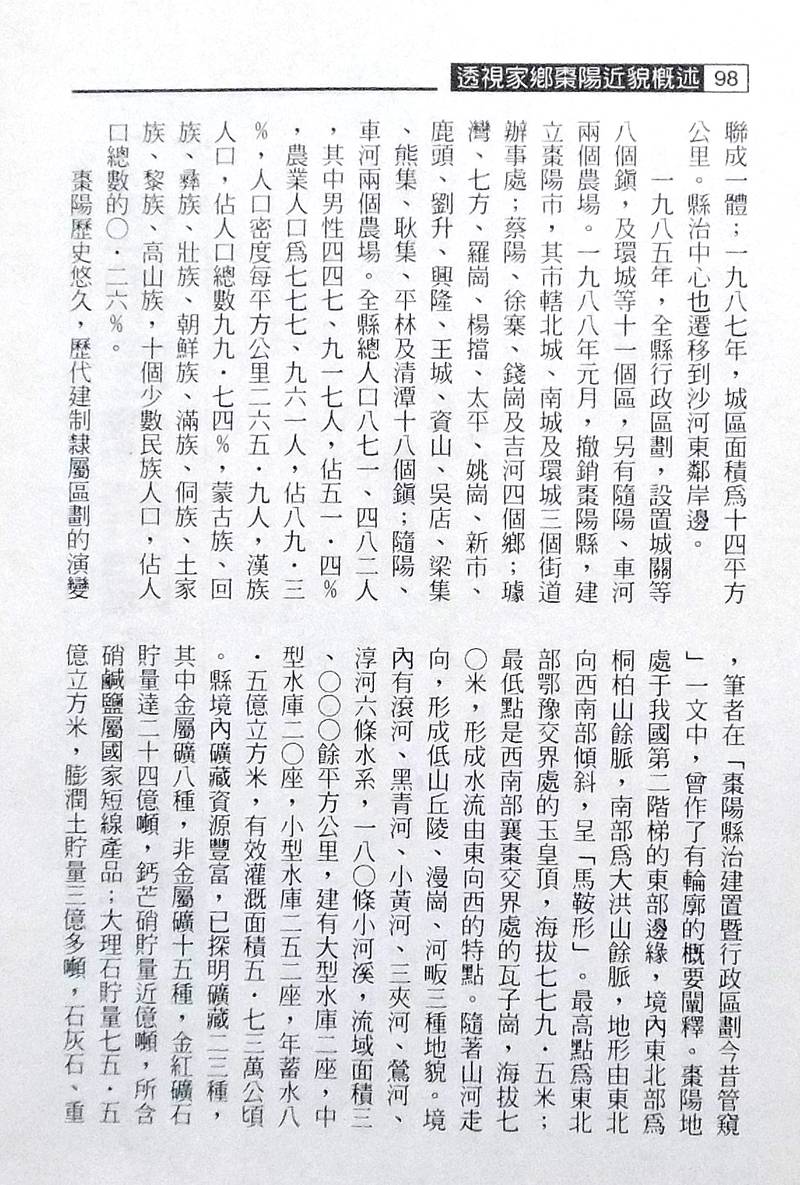 透視家鄉棗陽近貌概述 98
聯成一體；一九八七年，城區面積爲十四平方
公里。縣治中心也遷移到沙河東鄰岸邊。
一九八五年，全縣行政區劃，設置城關等
八個鎮，及環城等十一個區，另有隨陽、車河
兩個農場。一九八八年元月，撤銷棗陽縣，建
立棗陽市，其市轄北城、南城及環城三個街道
辦事處；蔡陽、徐寨、錢崗及吉河四個鄉；璩
灣、七方、羅崗、楊擋、太平、姚崗、新市、
鹿頭、劉升、興隆、王城、資山、吳店、梁集
、熊集、耿集、平林及清潭十八個鎮；隨陽、
車河兩個農場。全縣總人口八七一、四八二人
，其中男性四四七、九一七人，佔五一．四%
，農業人口爲七七七、九六一人，佔八九．三
%，人口密度每平方公里二六五．九人，漢族
人口，佔人口總數九九．七四%，蒙古族、回
族、彝族、壯族、朝鮮族、滿族、侗族、土家
族、黎族、高山族，十個少數民族人口，佔人
口總數的〇．二六%。
棗陽歷史悠久，歷代建制隸屬區劃的演變
，筆者在「棗陽縣治建置暨行政區劃今昔管窺
」一文中，曾作了有輪廓的概要闡釋。棗陽地
處于我國第二階梯的東部邊緣，境內東北部爲
桐柏山餘脈，南部爲大洪山餘脈，地形由東北
向西南部傾斜，呈「馬鞍形」。最高點爲東北
部鄂豫交界處的玉皇頂，海拔七七九．五米；
最低點是西南部襄棗交界處的瓦子崗，海拔七
〇米，形成水流由東向西的特點。隨著山河走
向，形成低山丘陵、漫崗、河畈三種地貌。境
內有滾河、黑青河、小黃河、三夾河、鶯河、
淳河六條水系，一八〇條小河溪，流域面積三
、〇〇〇餘平方公里，建有大型水庫二座，中
型水庫二〇座，小型水庫二五二座，年蓄水八
．五億立方米，有效灌溉面積五．七三萬公頃
。縣境內礦藏資源豐富，已探明礦藏二三種，
其中金屬礦八種，非金屬礦十五種，金紅礦石
貯量達二十四億噸，鈣芒硝貯量近億噸，所含
硝鹹鹽屬國家短線產品；大理石貯量七五．五
億立方米，膨潤土貯量三億多噸，石灰石、重